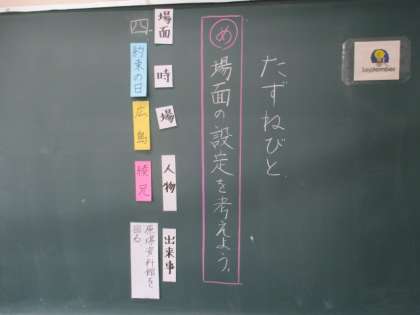 September
たずねびと
め 場面の設定を考えよう。
場面 時 場 人物 出来事
四 約束の日 広島 綾 兄 原爆資料館を回る